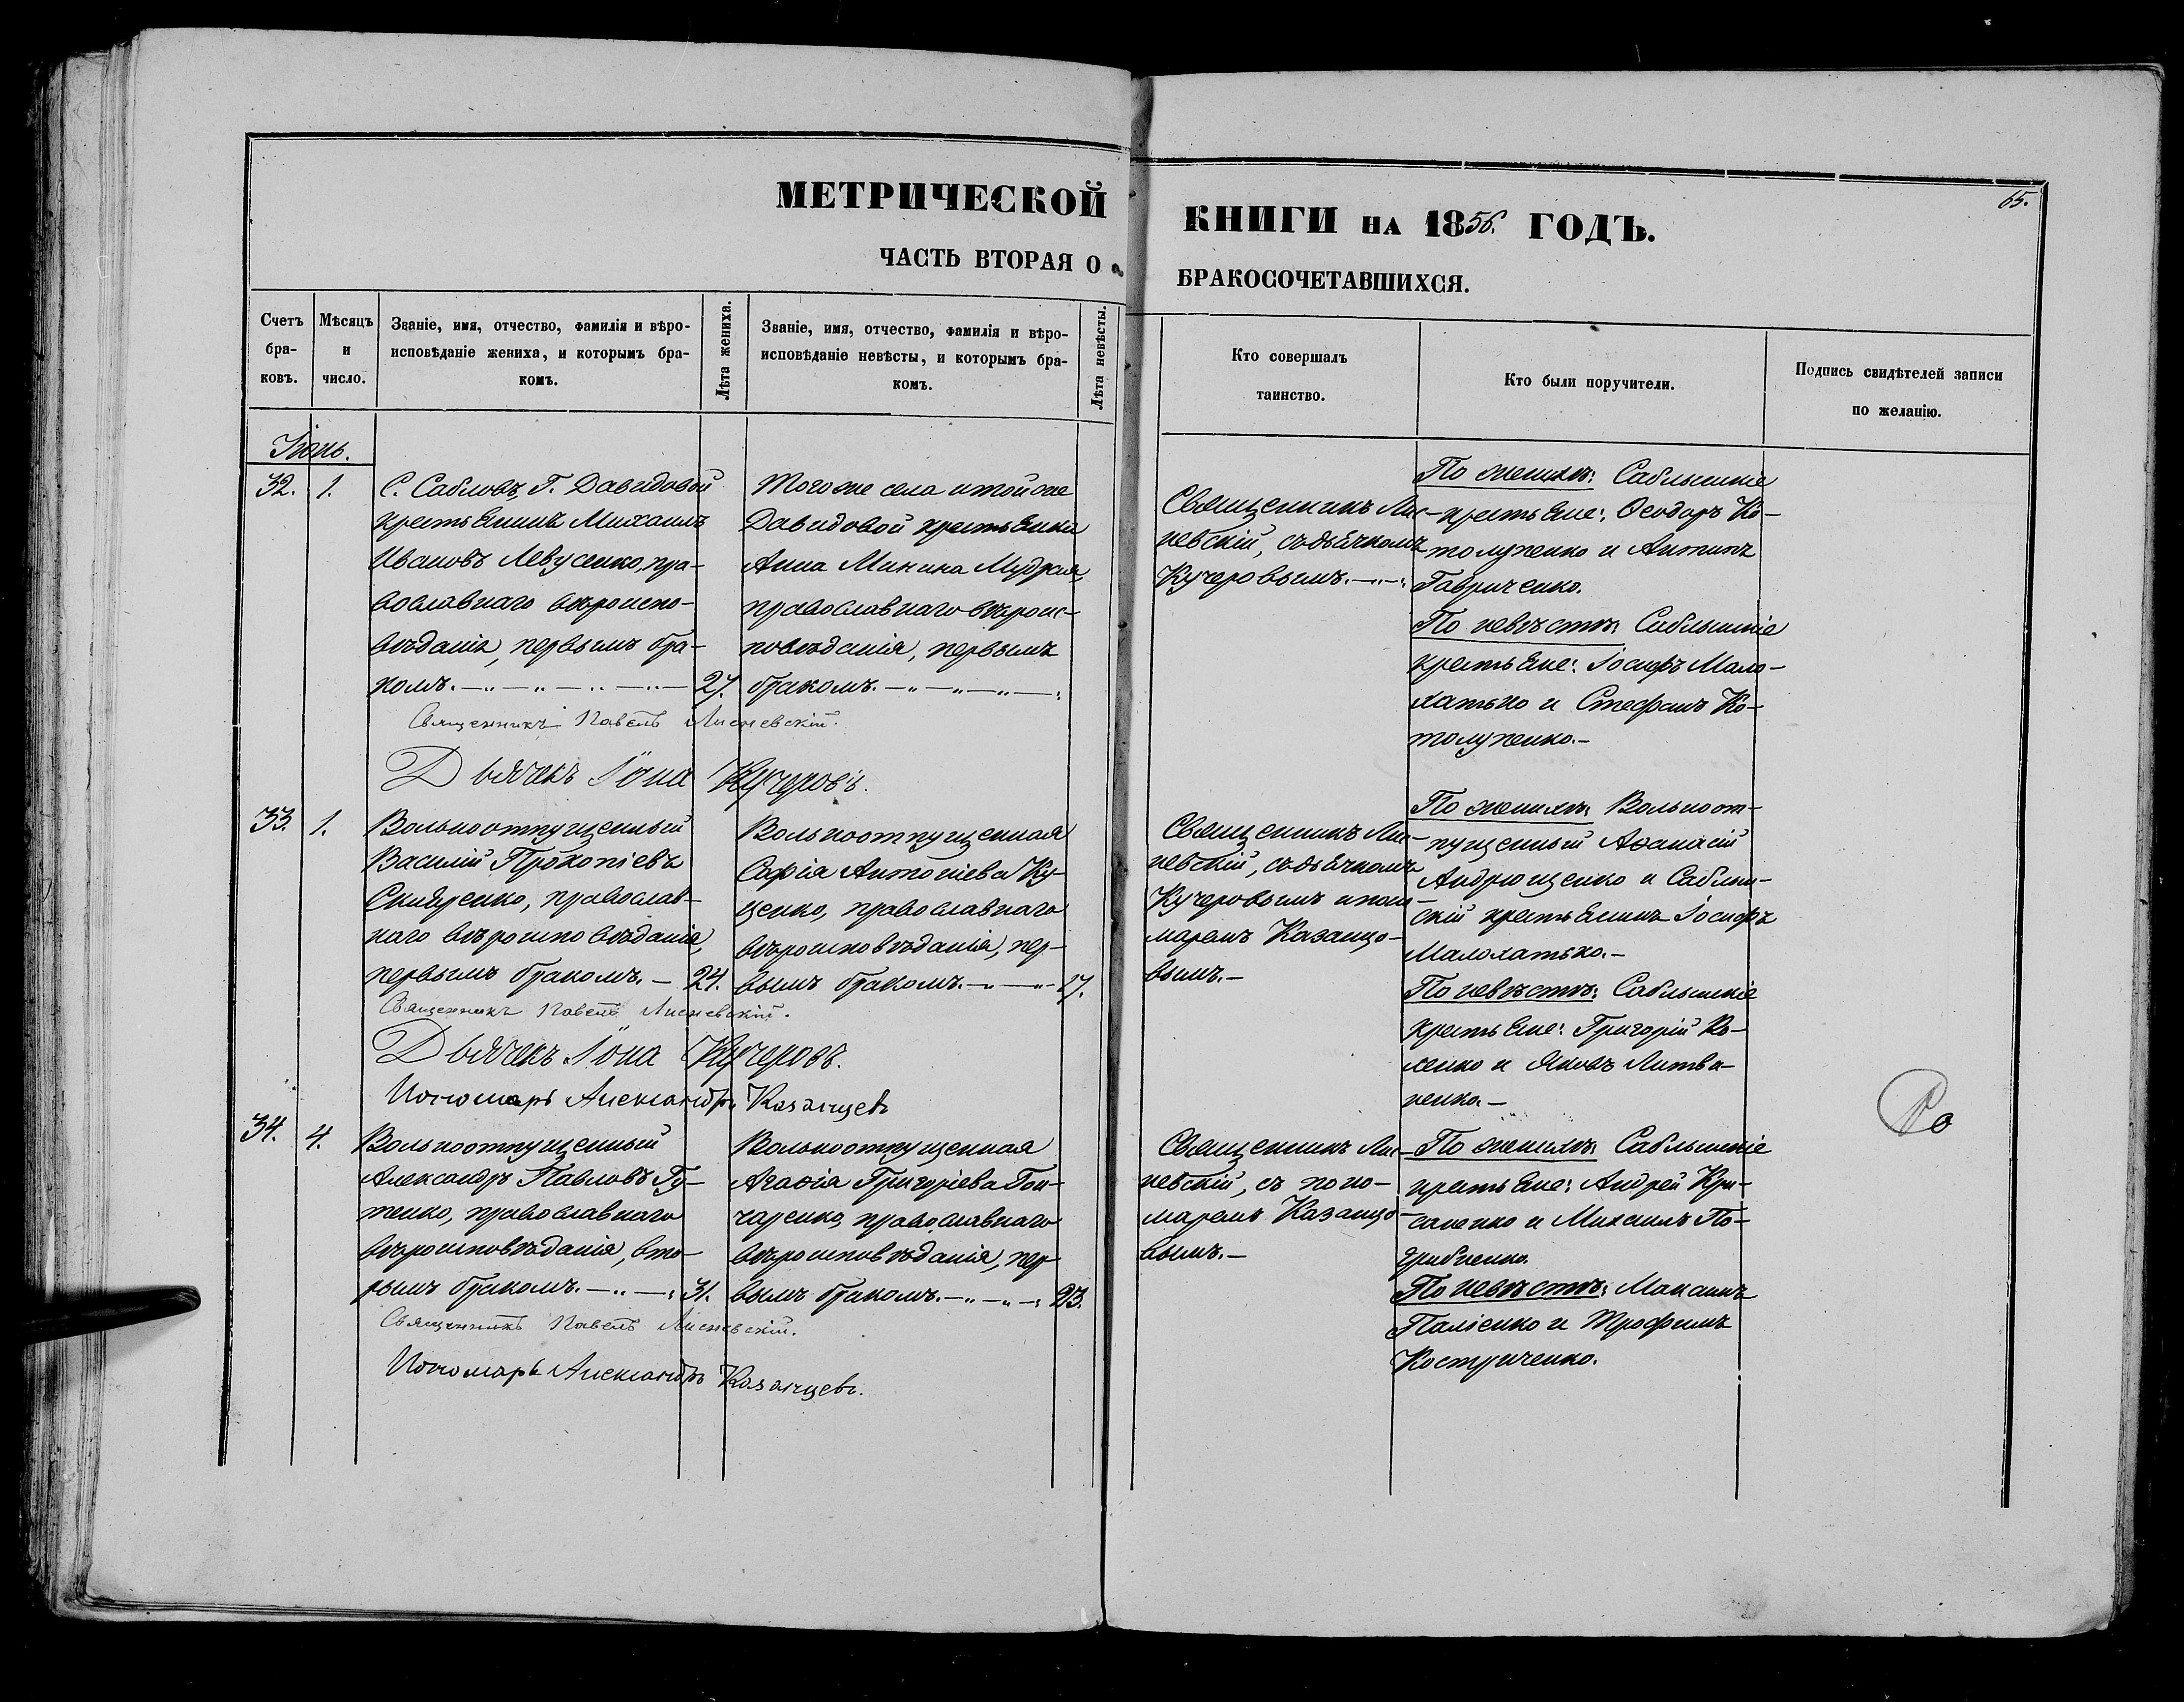 МЕТРИЧЕСКОЙ КНИГИ НА 1856. ГОДЪ.
65.
ЧАСТЬ ВТОРАЯ О БРАКОСОЧЕТАВШИХСЯ.
Счетъ
бра-
ковъ.
Мѣсяцъ
и
число.
Званіе, имя, отчество, фамилія и вѣро-
исповѣданіе жениха, и которымъ бра-
комъ.
Лѣта жениха.
Званіе, имя, отчество, фамилія и вѣро-
исповѣданіе невѣсты, и которымъ бра-
комъ.
Лѣта невѣсты.
Кто совершалъ
таинство.
Кто были поручители.
Подпись свидѣтелей записи
по желанію.
Іюнь.
32. 1.
С. Сабловъ, Г. Давидовой
крестьянинъ Михаилъ
Ивановъ Левусенко, пра-
вославнаго вѣроиспо-
вѣданія, первымъ бра-
комъ. 27.
Того же села и той же
Давидовой крестьянка
Анна Минина Мудрая,
православнаго вѣроис-
повѣданія, первымъ
бракомъ.
Священникъ Лис-
невскій, съ дьячкомъ
Кучеровымъ.
По женихѣ: Саблынскіе
крестьяне: Ѳеодоръ Ко-
толупенко и Антипъ
Гавриченко.
По невѣстѣ: Саблынскіе
крестьяне: Іосифъ Мало-
хатько и Стефанъ Ко-
толупенко.-
Священникъ Павелъ Лисневскій.
Дьячекъ Іона Кучеровъ.
33. 1.
Вольноотпущенный
Василій Прокопіевъ
Скляренко, православ-
наго вѣроисповѣданія,
первымъ бракомъ.- 24.
Вольноотпущенная
Софія Антоніева Ку-
ценко, православнаго
вѣроисповѣданія, пер-
вымъ бракомъ. 17.
Священникъ Лис-
невскій, съ дьячкомъ
Кучеровымъ и поно-
маремъ Казанцо-
вымъ.-
По женихѣ: Вольноот-
пущенный Аѳанасій
Андрющенко и Саблын-
скій крестьянинъ Іосифъ
Малохатько.-
По невѣстѣ: Саблынскіе
крестьяне: Григорій Ко-
ленко и Яковъ Литви-
ненко.-
Священникъ Павелъ Лисневскій.
Дьячекъ Іона Кучеровъ.
Пономарь Александръ Казанцевъ
34. 4.
Вольноотпущенный
Александръ Павловъ Гу-
тенко, православнаго
вѣроисповѣданія, вто-
рымъ бракомъ. 31.
Вольноотпущенная
Агаѳія Григоріева Гон-
чаренко, православнаго
вѣроисповѣданія, пер-
вымъ бракомъ. 23.
Священникъ Лис-
невскій, съ поно-
маремъ Казанцо-
вымъ.-
По женихѣ: Саблынскіе
крестьяне: Андрей Кри-
саненко и Михаилъ По-
грибненко.
По невѣстѣ: Максимъ
Паліенко и Трофимъ
Костриченко.
Священникъ Павелъ Лисневскій.
Пономарь Александръ Казанцевъ.